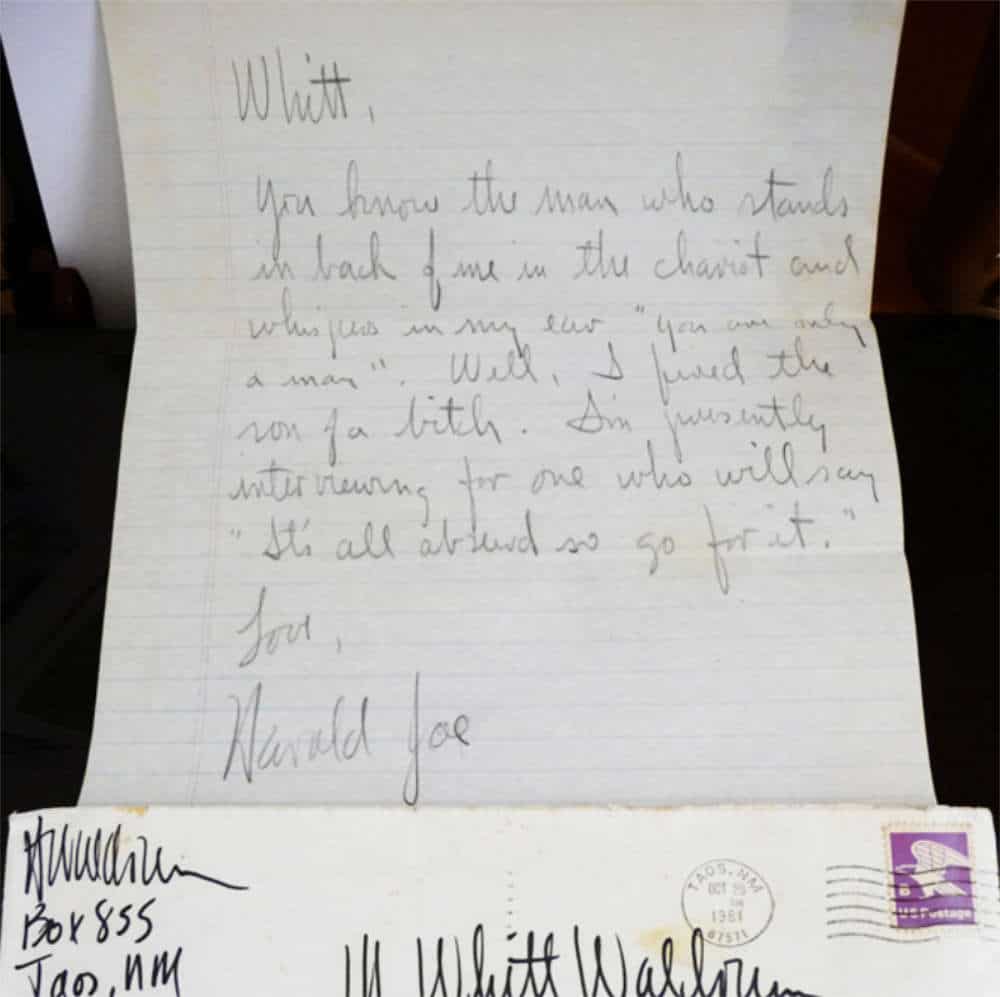 Whitt,
You know the man who stands
in back of me in the chariot and
whispers in my ear "you are only
a man". Well, I fired the
son of a bitch. I'm presently
interviewing for one who will say
"It's all absurd so go for it."
Love,
Harald Joe
Box 855
Taos, NM
TAOS, NM
OCT 29
1981
87571
B
U.S. Postage
M. Whitt Waldrum